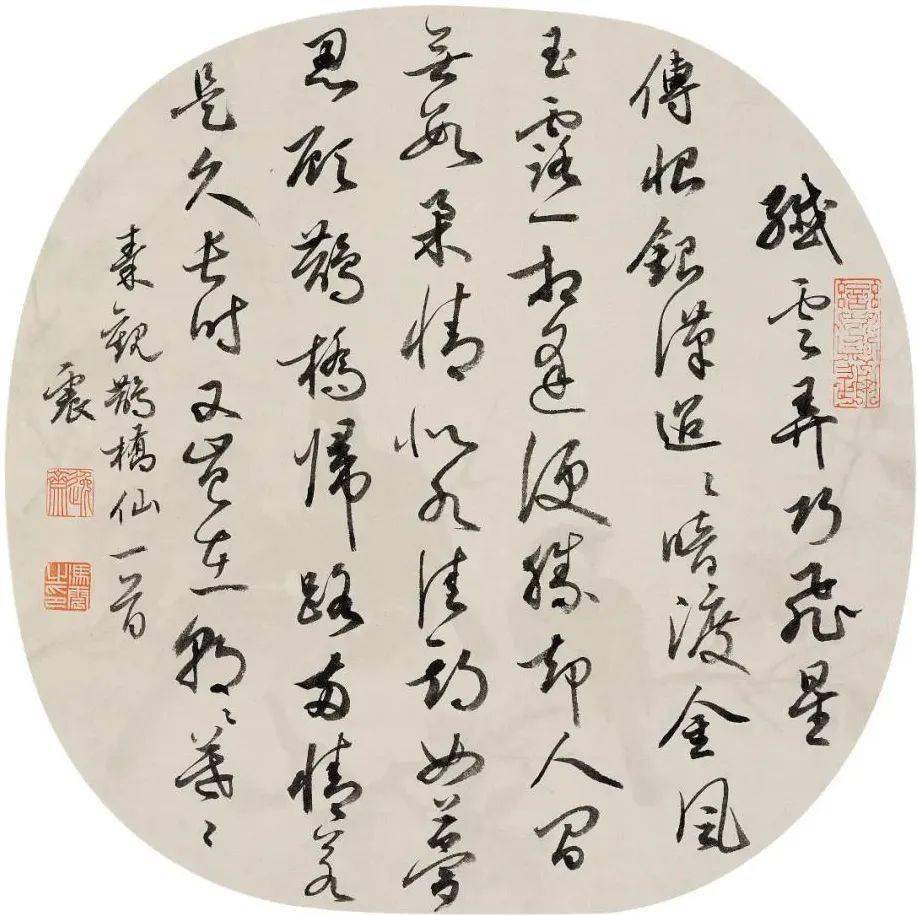 纖雲弄巧飛星
傳恨銀漢迢〻暗渡金風
玉露一相逢便勝却人間
無數柔情似水佳期如夢
忍顧鵲橋歸路兩情若
是久長時又豈在朝〻暮〻
秦觀鵲橋仙一首
震
馮震之印